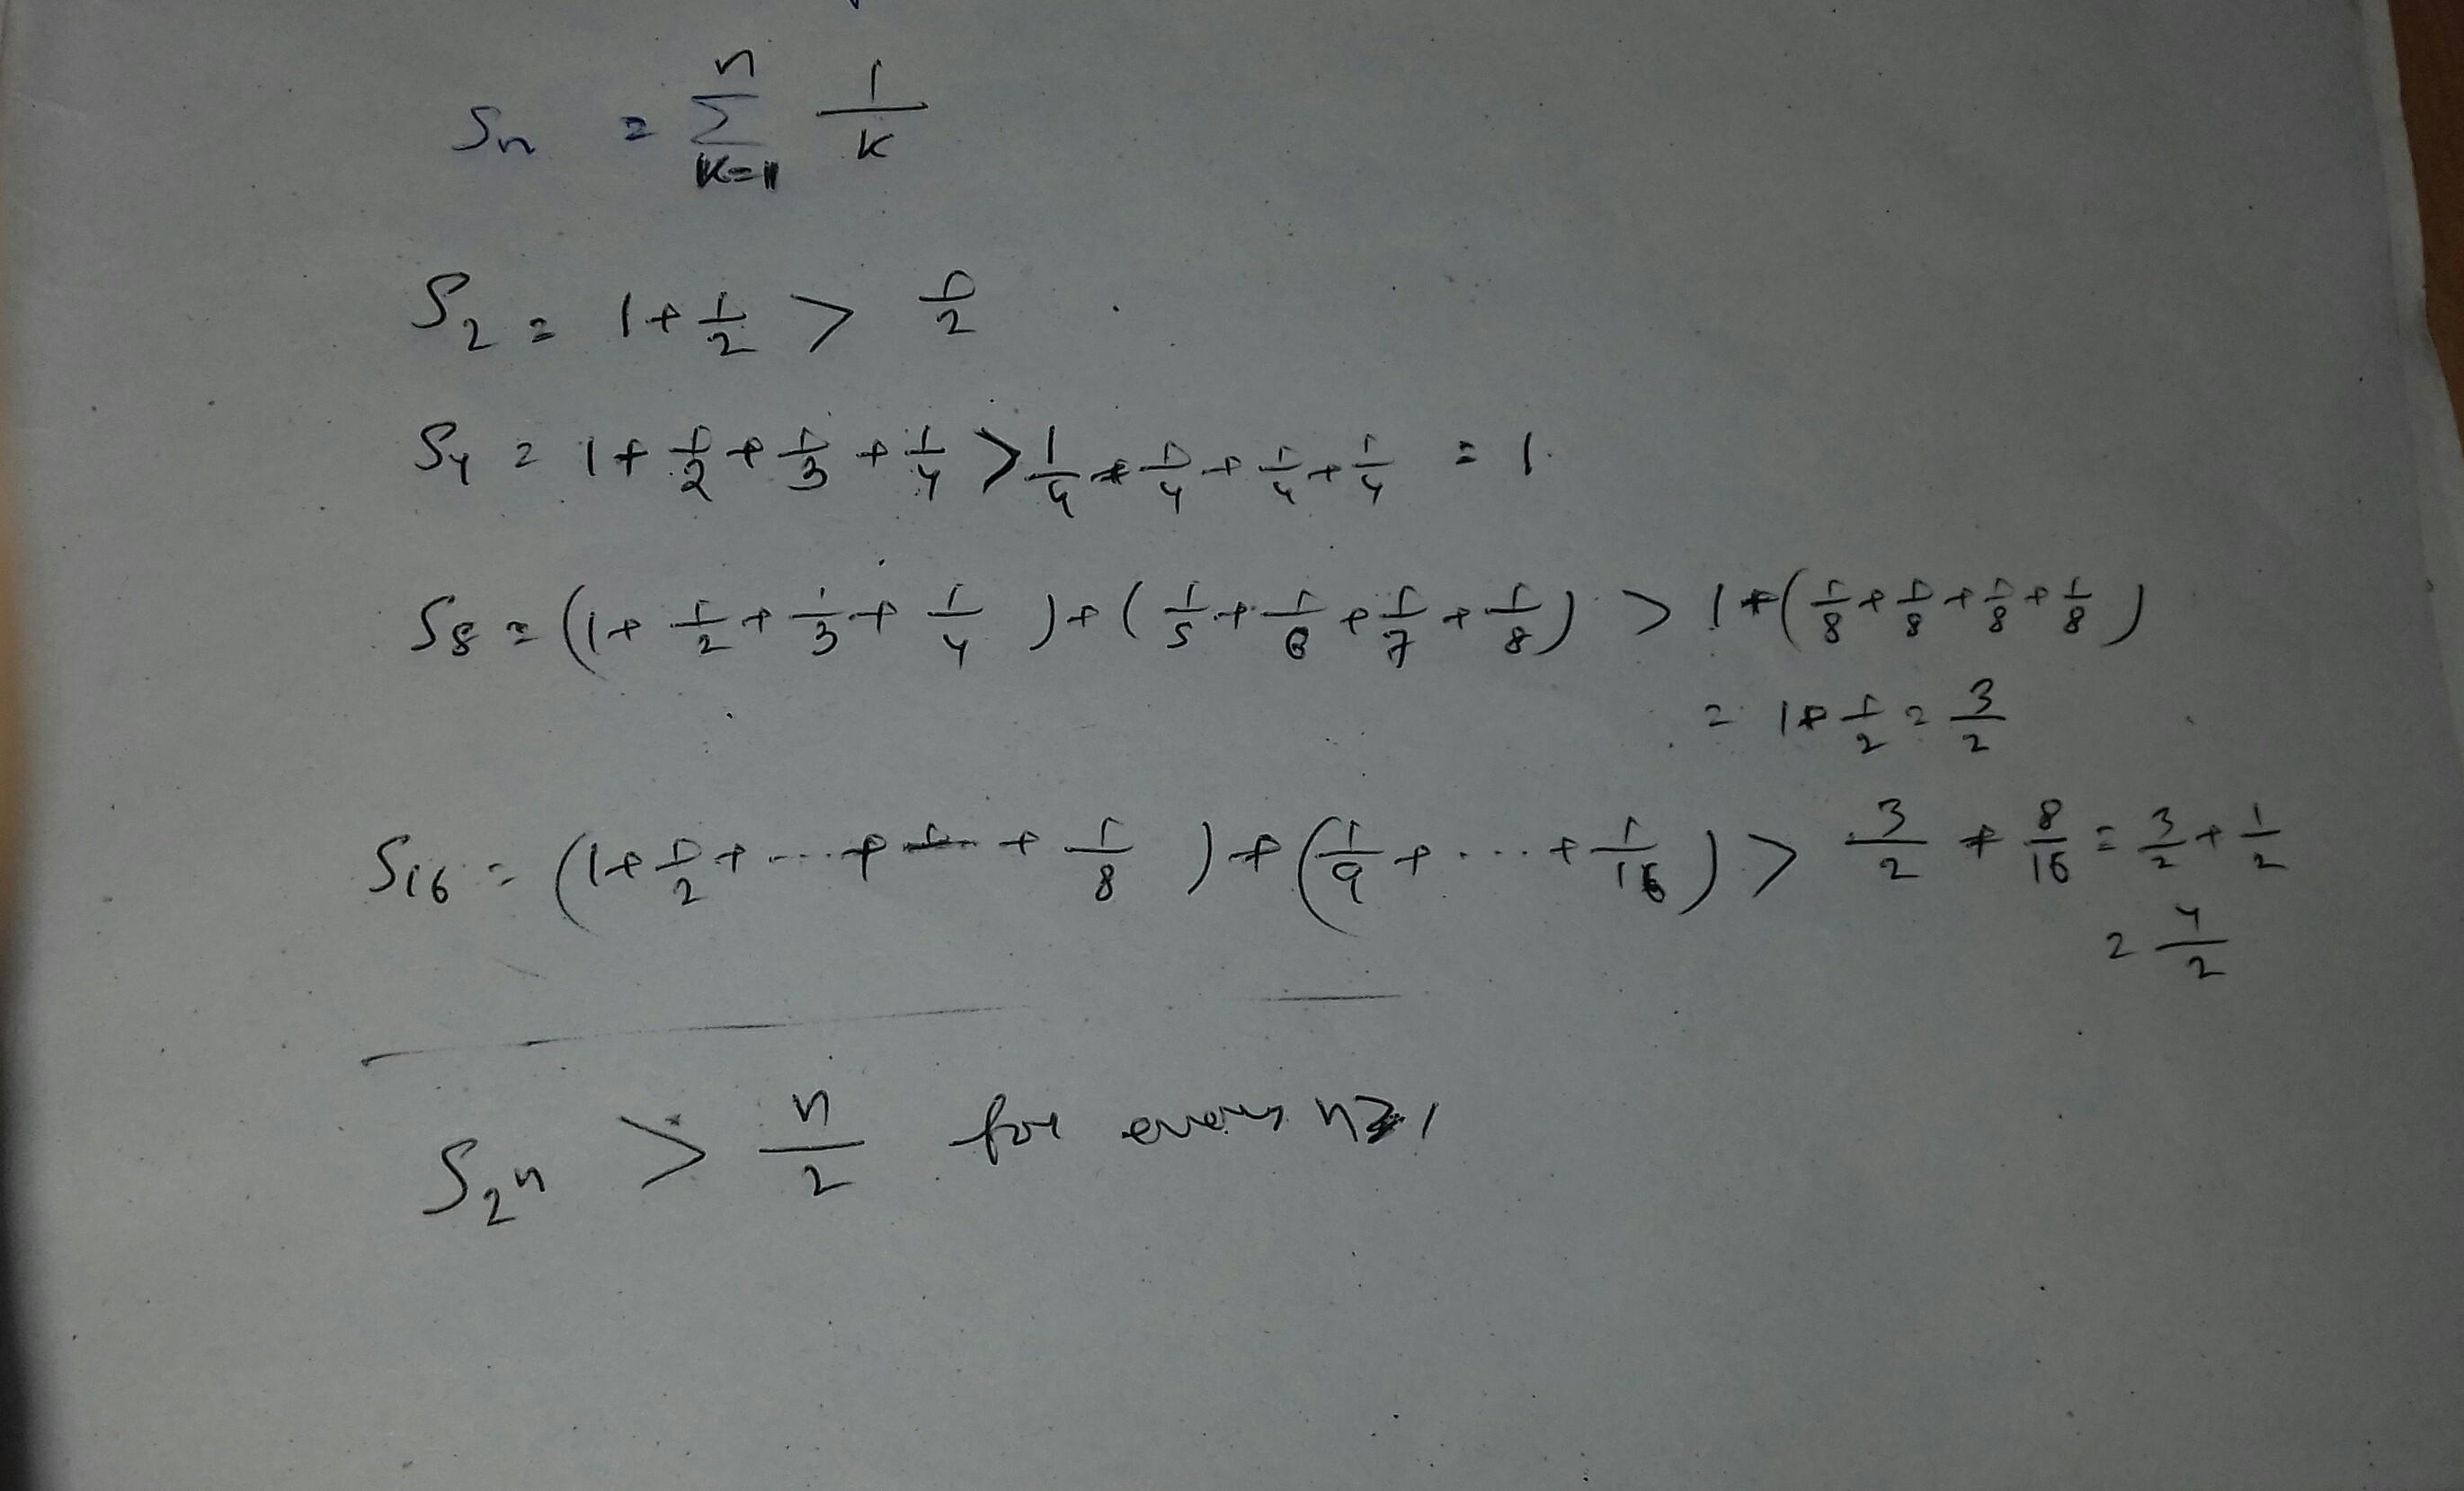 Sn = ∑_{k=1}^{n} 1/k
S₂ = 1 + 1/2 > 1/2
S₄ = 1 + 1/2 + 1/3 + 1/4 > 1/4 + 1/4 + 1/4 + 1/4 = 1.
S₈ = (1 + 1/2 + 1/3 + 1/4) + (1/5 + 1/6 + 1/7 + 1/8) > 1 + (1/8 + 1/8 + 1/8 + 1/8)
= 1 + 1/2 = 3/2
S₁₆ = (1 + 1/2 + ... + + 1/8) + (1/9 + ... + 1/16) > 3/2 + 8/16 = 3/2 + 1/2
= 4/2
S_{2^n} > n/2 for every n ≥ 1